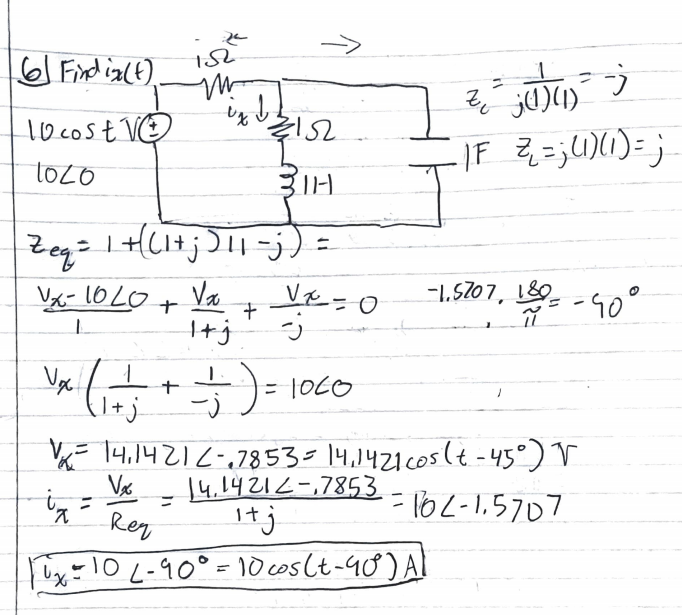 6) Find ix(t)
1Ω
ix ↓
1Ω
1H
1F
10 cos t V
10∠0
Z_c = 1/(j(1)(1)) = -j
Z_L = j(1)(1) = j
Zeq = 1+((1+j)||-j) =
(Vx - 10∠0)/1 + Vx/(1+j) + Vx/(-j) = 0
-1.5707 · 180/π = -90°
Vx (1/(1+j) + 1/(-j)) = 10∠0
Vx = 14.1421∠-.7853 = 14.1421cos(t-45°) V
ix = Vx/Req = (14.1421∠-.7853)/(1+j) = 10∠-1.5707
ix = 10∠-90° = 10cos(t-90°) A